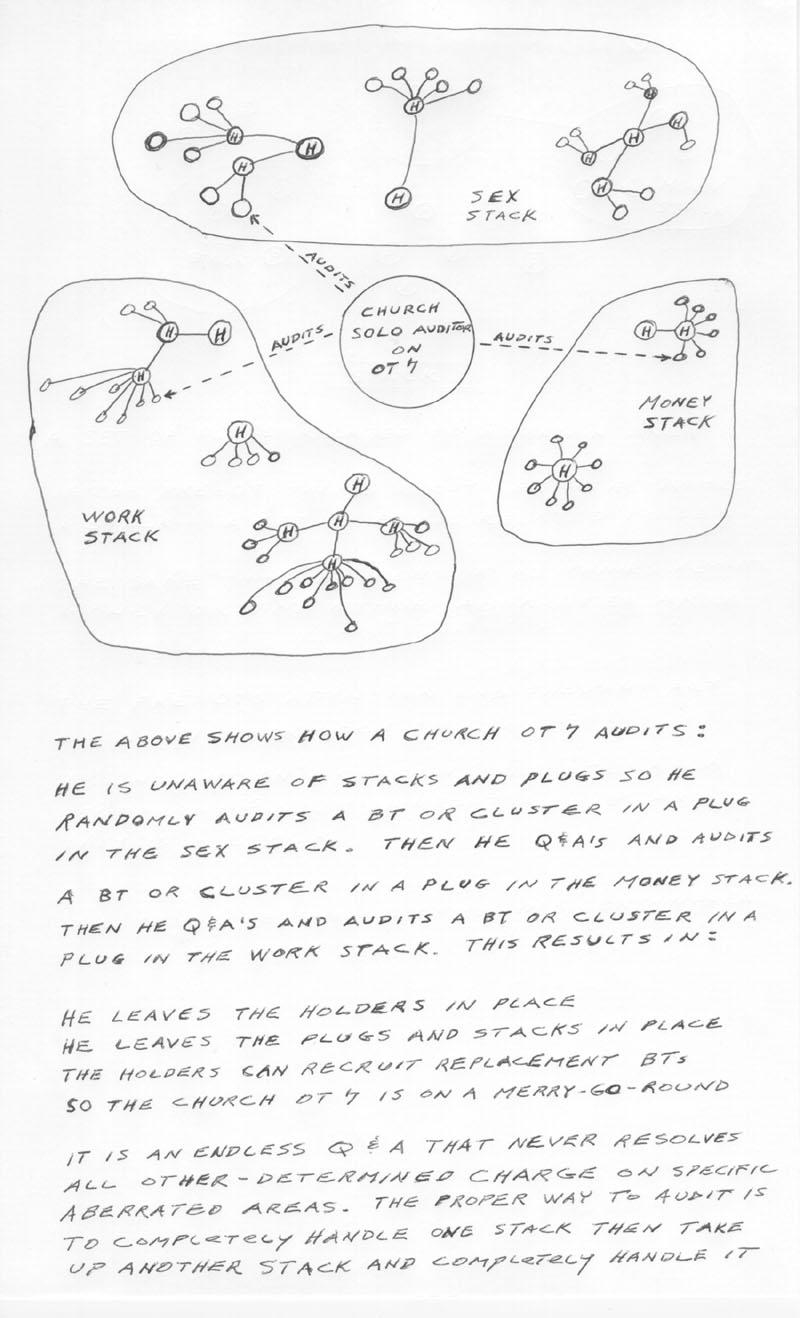 H
H
H
H
H
H
H
H
H
H
SEX
STACK
AUDITS
CHURCH
SOLO AUDITOR
ON
OT 7
AUDITS
AUDITS
H
H
H
H
H
MONEY
STACK
H
H
H
H
H
H
H
WORK
STACK
H
THE ABOVE SHOWS HOW A CHURCH OT 7 AUDITS:
HE IS UNAWARE OF STACKS AND PLUGS SO HE
RANDOMLY AUDITS A BT OR CLUSTER IN A PLUG
IN THE SEX STACK. THEN HE Q&A'S AND AUDITS
A BT OR CLUSTER IN A PLUG IN THE MONEY STACK.
THEN HE Q&A'S AND AUDITS A BT OR CLUSTER IN A
PLUG IN THE WORK STACK. THIS RESULTS IN:
HE LEAVES THE HOLDERS IN PLACE
HE LEAVES THE PLUGS AND STACKS IN PLACE
THE HOLDERS CAN RECRUIT REPLACEMENT BTs
SO THE CHURCH OT 7 IS ON A MERRY-GO-ROUND
IT IS AN ENDLESS Q & A THAT NEVER RESOLVES
ALL OTHER-DETERMINED CHARGE ON SPECIFIC
ABERRATED AREAS. THE PROPER WAY TO AUDIT IS
TO COMPLETELY HANDLE ONE STACK THEN TAKE
UP ANOTHER STACK AND COMPLETELY HANDLE IT